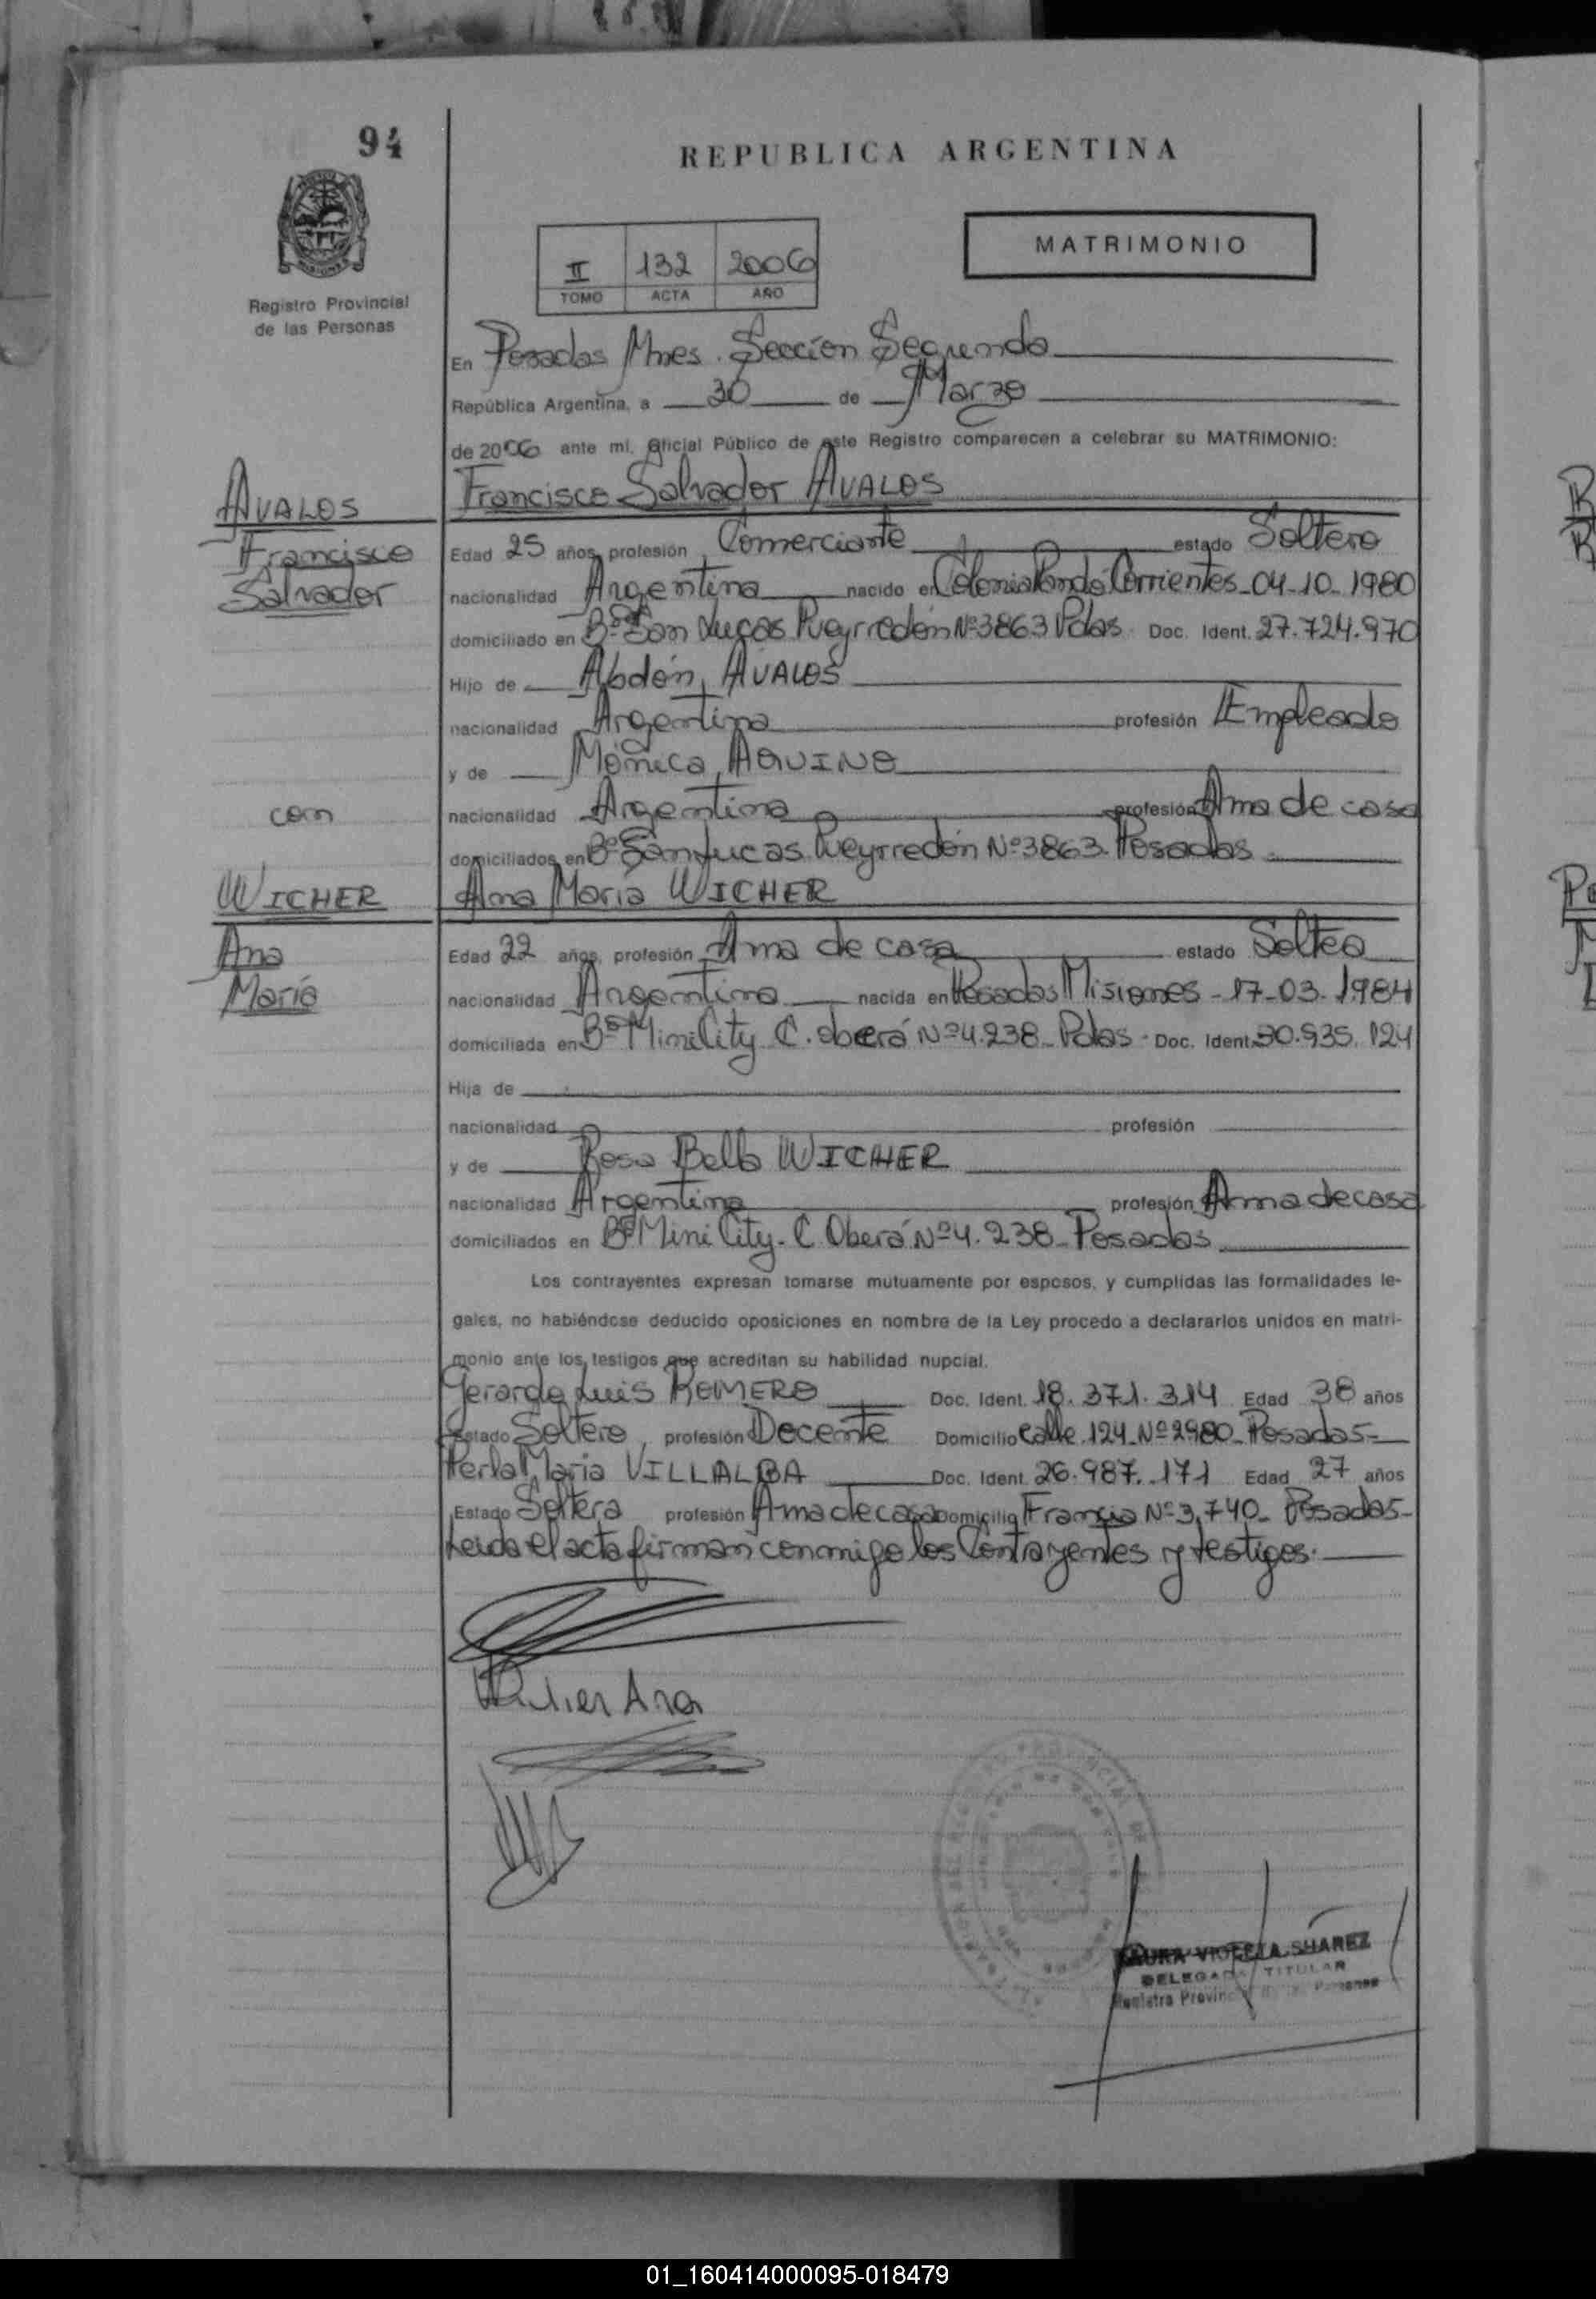 94
REPUBLICA ARGENTINA
MATRIMONIO
II 132 2006
TOMO ACTA AÑO
Registro Provincial
de las Personas
En Posadas Mnes. Sección Segunda
República Argentina, a 30 de Marzo
de 2006 ante mí, Oficial Público de este Registro comparecen a celebrar su MATRIMONIO:
AVALOS
Francisco
Salvador
Francisco Salvador AVALOS
Edad 25 años, profesión Comerciante estado Soltero
nacionalidad Argentina nacido en Colonia Pando Corrientes - 04-10-1980
domiciliado en Bº San Lucas Pueyrredón Nº 3863 Pdas. Doc. Ident. 27.724.970
Hijo de Abdón AVALOS
nacionalidad Argentina profesión Empleado
y de Mónica AQUINO
nacionalidad Argentina profesión Ama de casa
domiciliados en Bº San Lucas Pueyrredón Nº 3863. Posadas
con
WICHER
Ana
María
Ana María WICHER
Edad 22 años, profesión Ama de casa estado Soltea
nacionalidad Argentina nacida en Posadas Misiones - 17-03-1984
domiciliada en Bº Mini City C. oberá Nº 4.238 - Pdas - Doc. Ident. 30.935.124
Hija de
nacionalidad profesión
y de Rosa Bella WICHER
nacionalidad Argentina profesión Ama de casa
domiciliados en Bº Mini City - C. Oberá Nº 4.238 - Posadas
Los contrayentes expresan tomarse mutuamente por esposos, y cumplidas las formalidades le-
gales, no habiéndose deducido oposiciones en nombre de la Ley procedo a declararlos unidos en matri-
monio ante los testigos que acreditan su habilidad nupcial.
Gerardo Luis ROMERO Doc. Ident. 18.371.314 Edad 38 años
Estado Soltero profesión Docente Domicilio Calle 124 Nº 2980 - Posadas -
Perla María VILLALBA Doc. Ident. 26.987.171 Edad 27 años
Estado Soltera profesión Ama de casa Domicilio Francia Nº 3.740 - Posadas -
Leida el acta firman conmigo los Contrayentes y testigos.
Wicher Ana
LAURA VIOLETA SUAREZ
DELEGADA TITULAR
Registro Provincial de las Personas
01_160414000095-018479